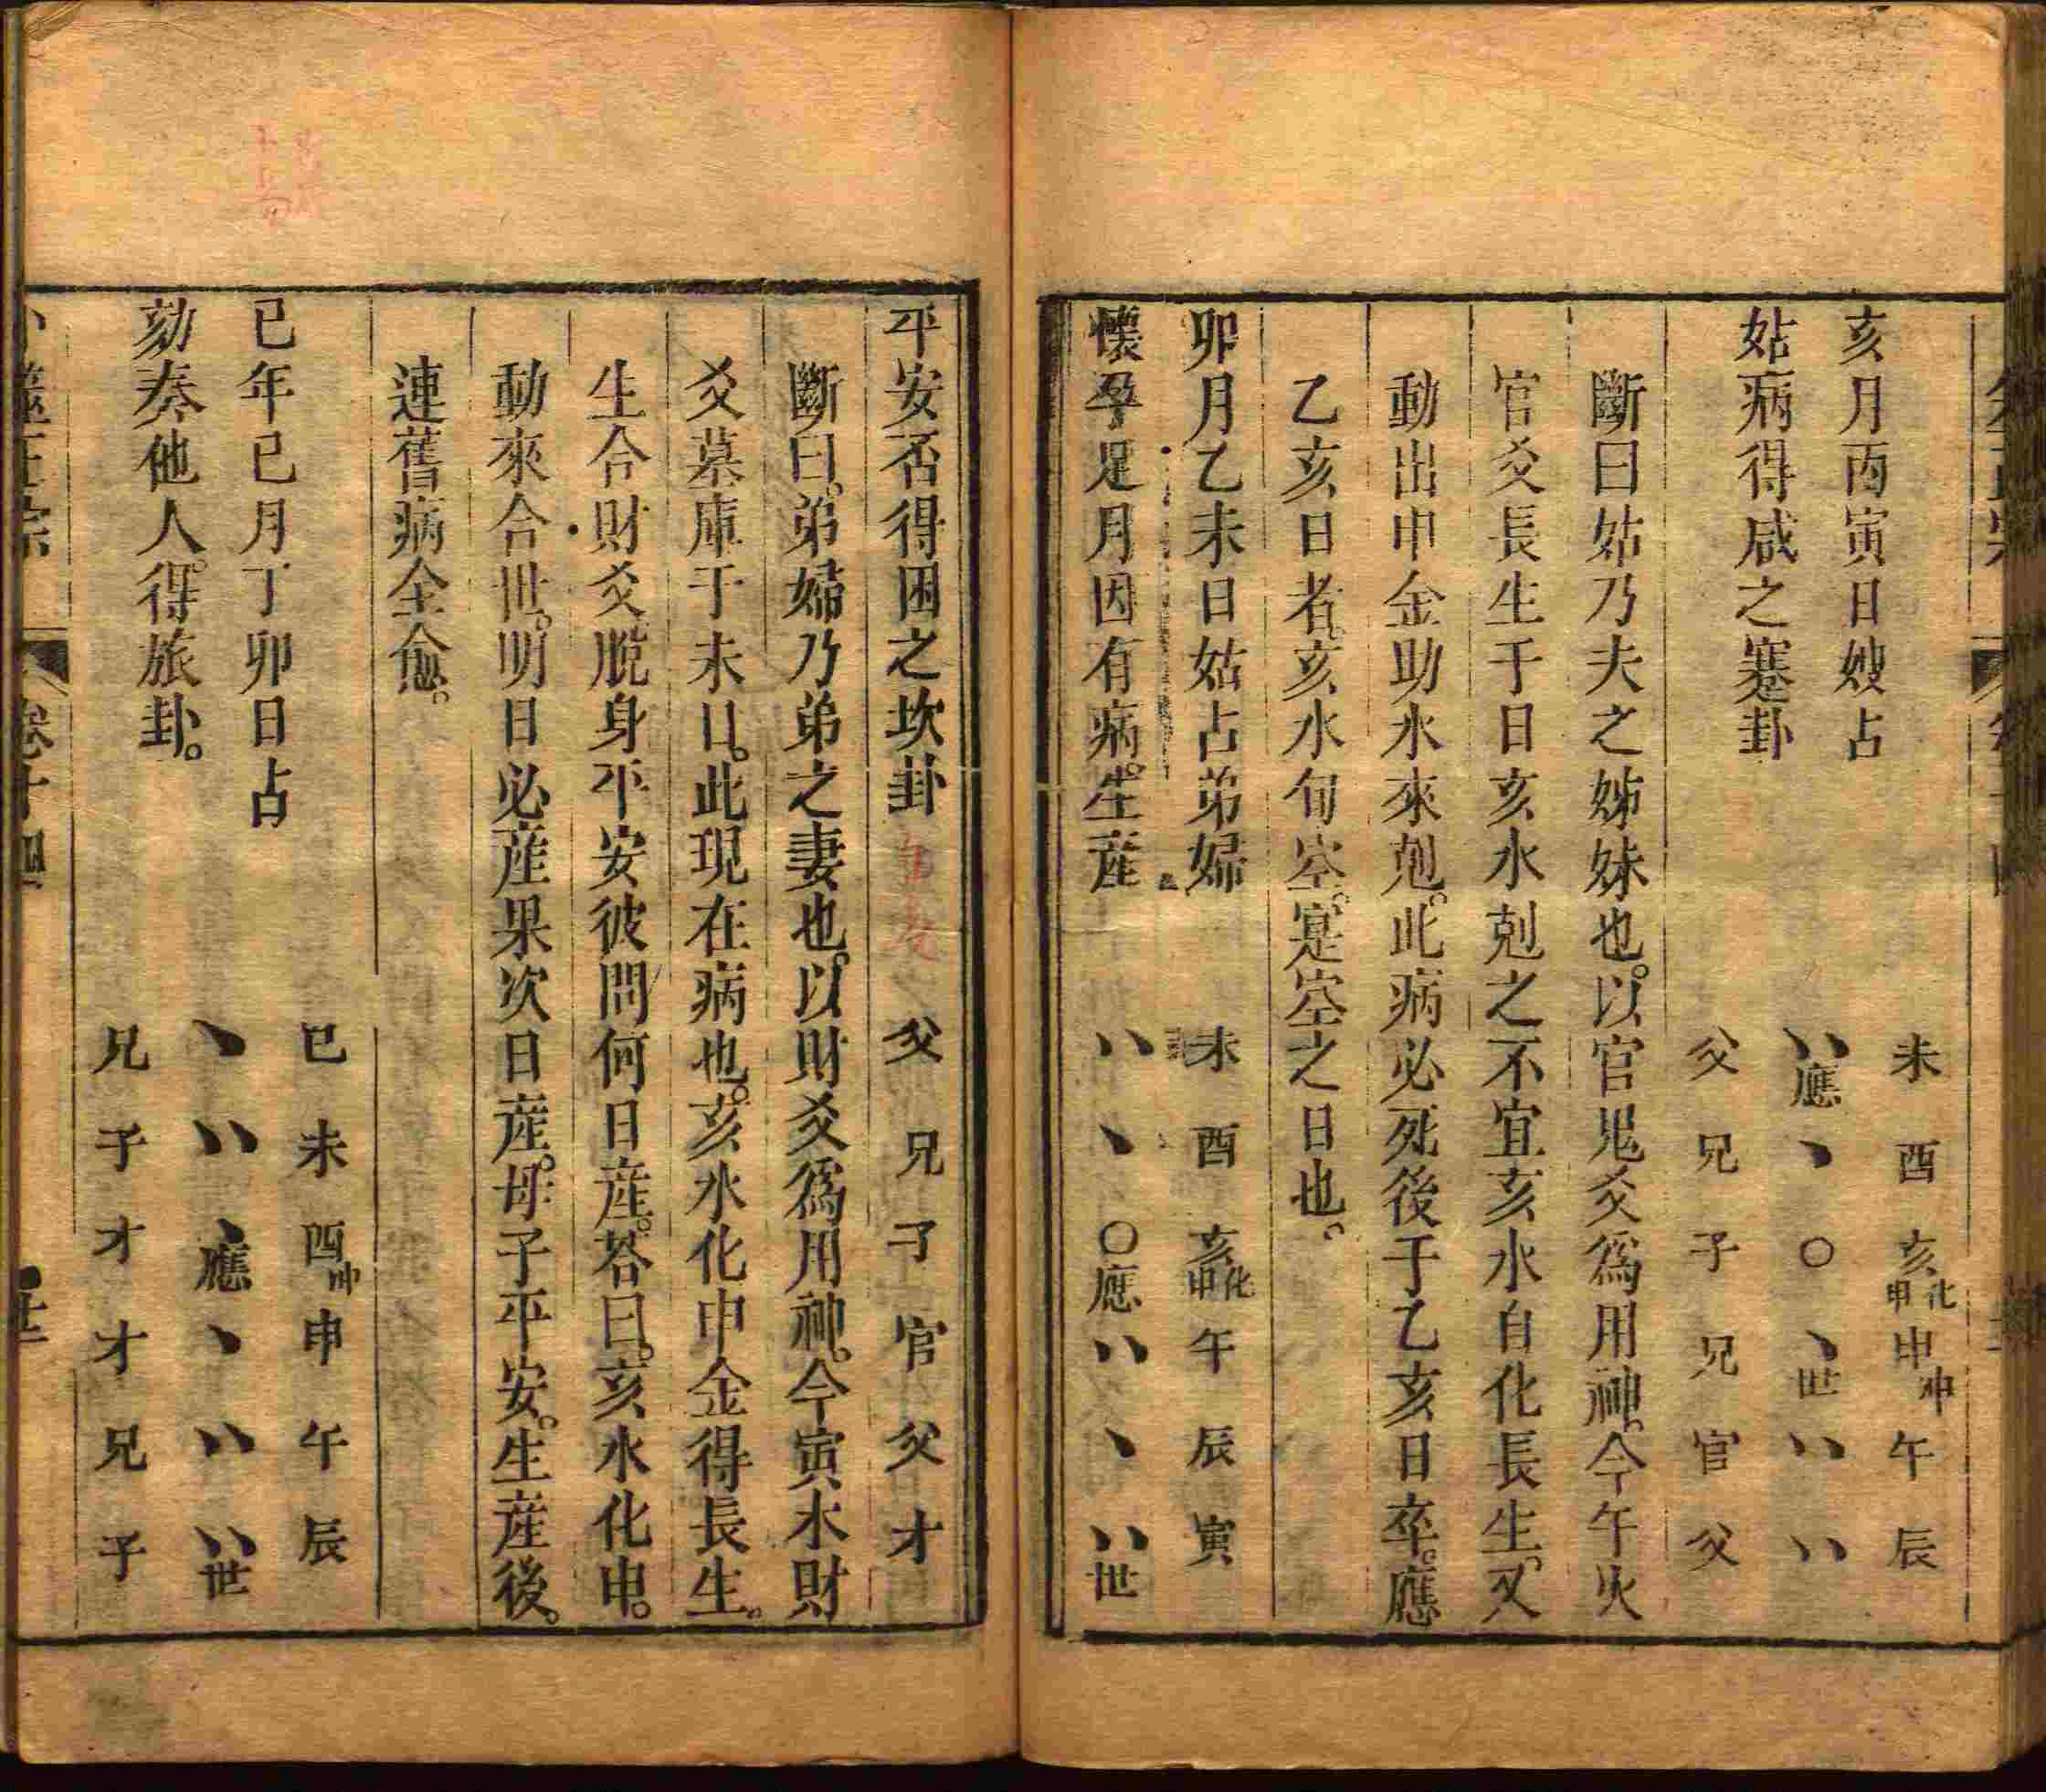 亥月丙寅日嫂占
姑病得咸之蹇卦
未 酉 亥化申 申冲 午 辰
〵〵應 〵 〇 〵世 〵〵 〵〵
父 兄 子 兄 官 父
斷曰姑乃夫之姊妹也。以官鬼爻爲用神。今午火
官爻長生于日亥水剋之不宜亥水自化長生。又
動出申金助水來剋。此病必死後于乙亥日卒。應
乙亥日者。亥水旬空。寔空之日也。
卯月乙未日姑占弟婦
懷孕足月因有病。生産
未 酉 亥化申 午 辰 寅
〵〵 〵 〇應 〵〵 〵 〵〵世
平安否得困之坎卦
父 兄 子 官 父 才
斷曰。弟婦乃弟之妻也。以財爻爲用神。今寅木財
爻墓庫于未日。此現在病也。亥水化申金得長生。
生合財爻脫身平安彼問何日産。荅曰。亥水化申。
動來合世。明日必産果次日産。母子平安。生産後。
連舊病全愈。
巳年巳月丁卯日占
劾奏他人。得旅卦。
巳 未 酉冲 申 午 辰
〵 〵〵 〵應 〵 〵〵 〵〵世
兄 子 才 才 兄 子
卷十四